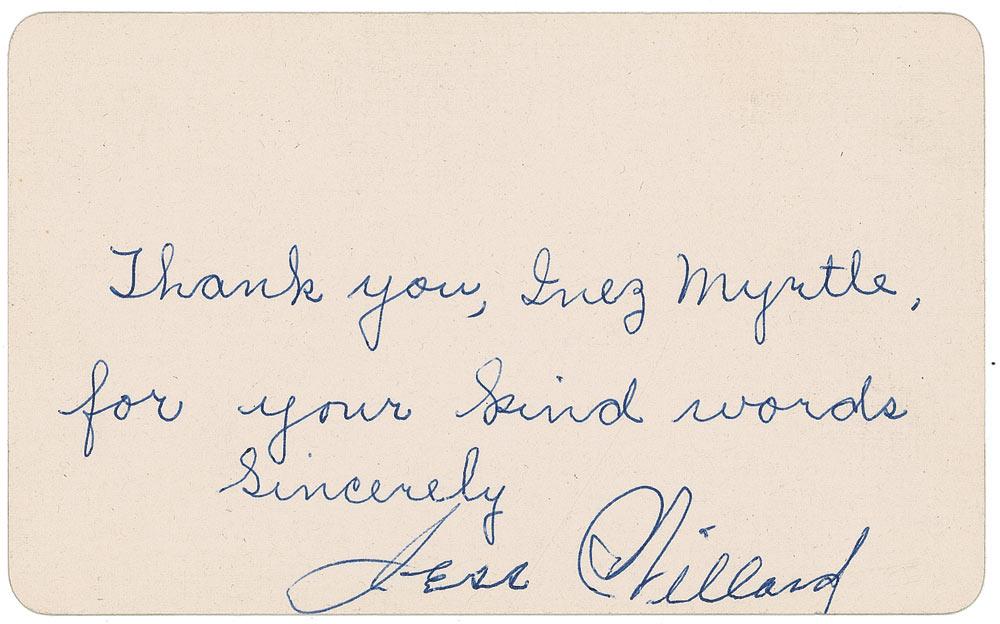 Thank you, Inez Myrtle,
for your kind words
Sincerely
Jess Willard